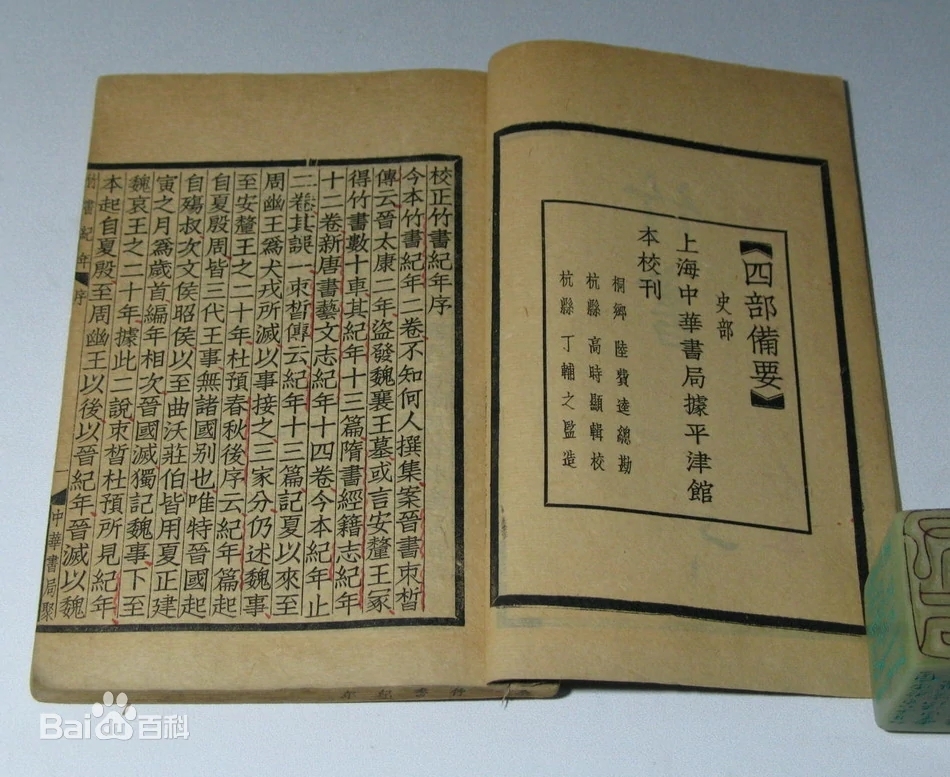 【四部備要】
史部
上海中華書局據平津館
本校刊
桐鄉 陸費逵總勘
杭縣 高時顯輯校
杭縣 丁輔之監造
校正竹書紀年序
今本竹書紀年二卷不知何人撰集案晉書束皙
傳云晉太康二年盜發魏襄王墓或言安釐王冢
得竹書數十車其紀年十三篇隋書經籍志紀年
十二卷新唐書藝文志紀年十四卷今本紀年止
二卷其誤一束皙傳云紀年十三篇記夏以來至
周幽王爲犬戎所滅以事接之三家分仍述魏事
至安釐王之二十年杜預春秋後序云紀年篇起
自夏殷周皆三代王事無諸國别也唯特晉國起
自殤叔次文侯昭侯以至曲沃莊伯皆用夏正建
寅之月爲歲首編年相次晉國滅獨記魏事下至
魏哀王之二十年據此二說束皙杜預所見紀年
本起自夏殷至周幽王以後以晉紀年晉滅以魏
竹書紀年 序
一
中華書局聚
竹書紀年
Bai百科